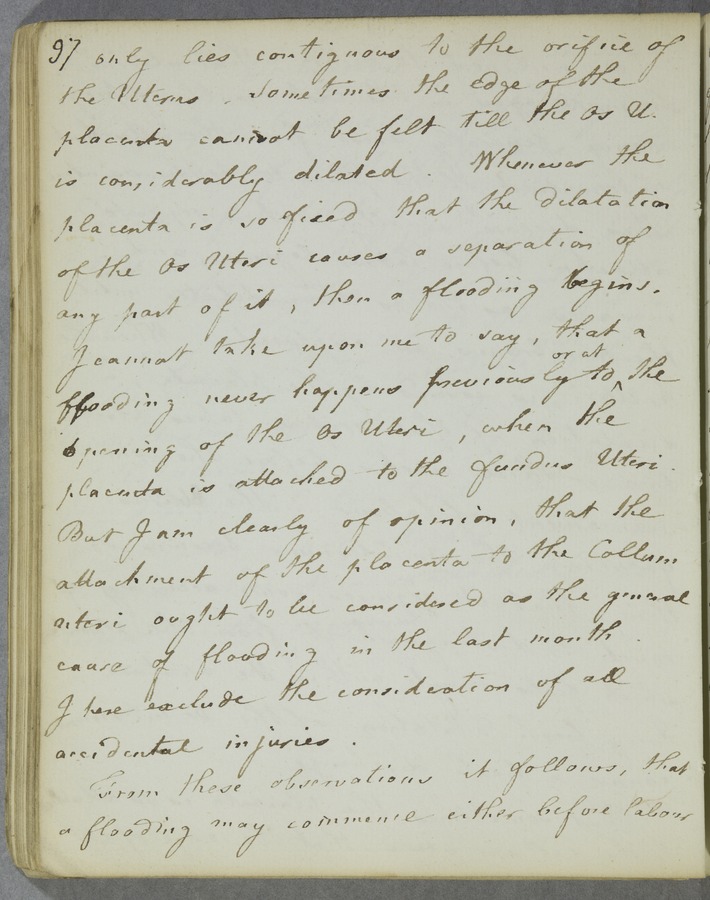 97 only lies contiguous to the orifice of
the Uterus. Sometimes the edge of the
placenta cannot be felt till the Os U.
is considerably dilated. Whenever the
placenta is so fixed that the dilatation
of the Os Uteri causes a separation of
any part of it, then a flooding begins.
I cannot take upon me to say, that a
or at
flooding never happens previously to ‸ the
opening of the Os Uteri, when the
placenta is attached to the fundus Uteri.
But I am clearly of opinion, that the
attachment of the placenta to the Collum
uteri ought to be considered as the general
cause of flooding in the last month.
I here exclude the consideration of all
accidental injuries.
From these observations it follows, that
a flooding may commence either before labour